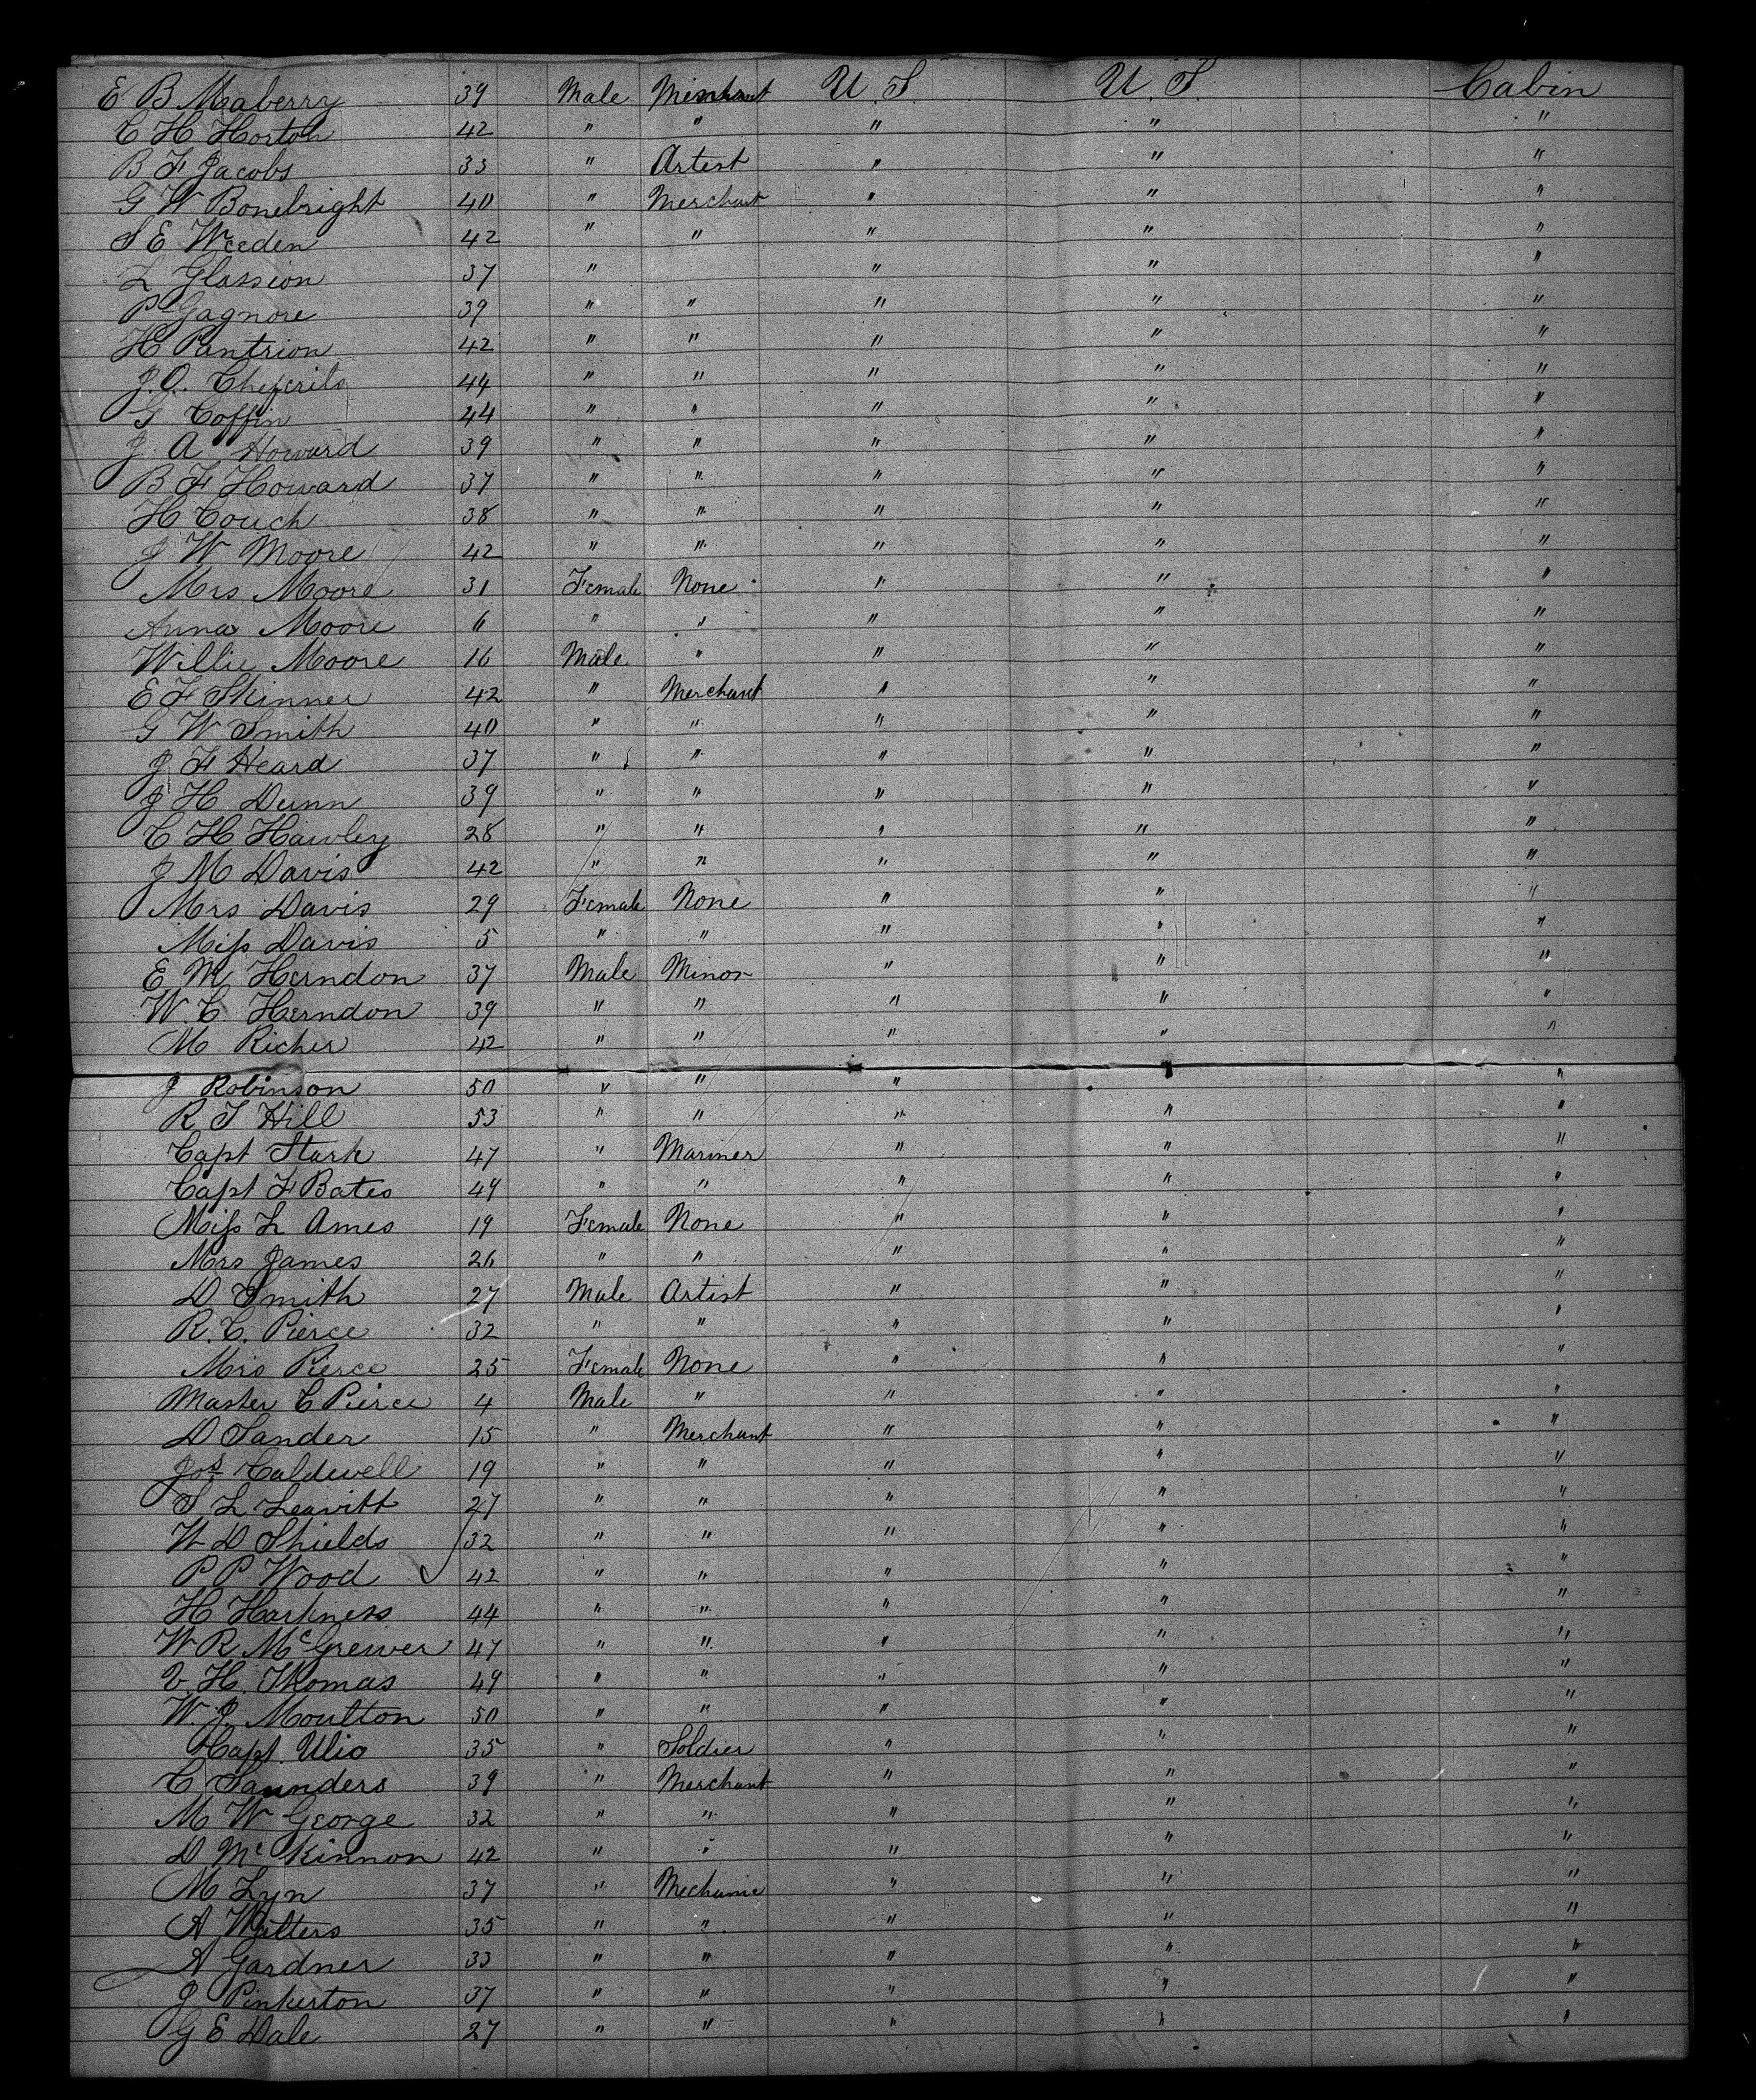 E B Maberry 39 Male Merchant U. S. U. S. Cabin
C H Horton 42 " " " " "
B F Jacobs 33 " Artest " " "
G W Bonebright 40 " Merchant " " "
S E Weeden 42 " " " " "
L Glassion 37 " " " "
P Gagnore 39 " " " " "
H Pantrion 42 " " " " "
J. O. 44 " " " " "
G Coffin 44 " " " " "
J. A Howard 39 " " " " "
B F Howard 37 " " " " "
H Couch 38 " " " " "
J W Moore 42 " " " " "
Mrs Moore 31 Female None " " "
Anna Moore 6 " " " " "
Willie Moore 16 Male " " " "
E F Skinner 42 " Merchant " " "
G W Smith 40 " " " " "
J F Heard 37 " " " " "
J H Dunn 39 " " " " "
C H Hawley 28 " " " " "
J M Davis 42 " " " " "
Mrs Davis 29 Female None " " "
Miss Davis 5 " " " " "
E M Herndon 37 Male Minor " " "
W. C. Herndon 39 " " " " "
M Richer 42 " " " " "
J Robinson 50 " " " " "
R S Hill 53 " " " " "
Capt Stark 47 " Mariner " " "
Capt F Bates 49 " " " " "
Miss L Ames 19 Female None " " "
Mrs James 26 " " " " "
D Smith 27 Male Artist " " "
R. C. Pierce 32 " " " " "
Mrs Pierce 25 Female None " " "
Master C Pierce 4 Male " " " "
D Sander 15 " Merchant " " "
Jos Caldwell 19 " " " " "
S L Leavitt 27 " " " " "
W D Shields 32 " " " " "
P P Wood 42 " " " " "
H Harkness 44 " " " " "
W R McGrewer 47 " " " " "
V. H. Thomas 49 " " " " "
W. J. Moulton 50 " " " " "
Capt. Ulio 35 " Soldier " " "
C Saunders 39 " Merchant " " "
M W George 32 " " " " "
D Mc Kinnon 42 " " " " "
M Lyn 37 " Mechanic " " "
A Walters 35 " " " " "
A Gardner 33 " " " " "
J Pinkerton 37 " " " " "
G E Dale 27 " " " " "